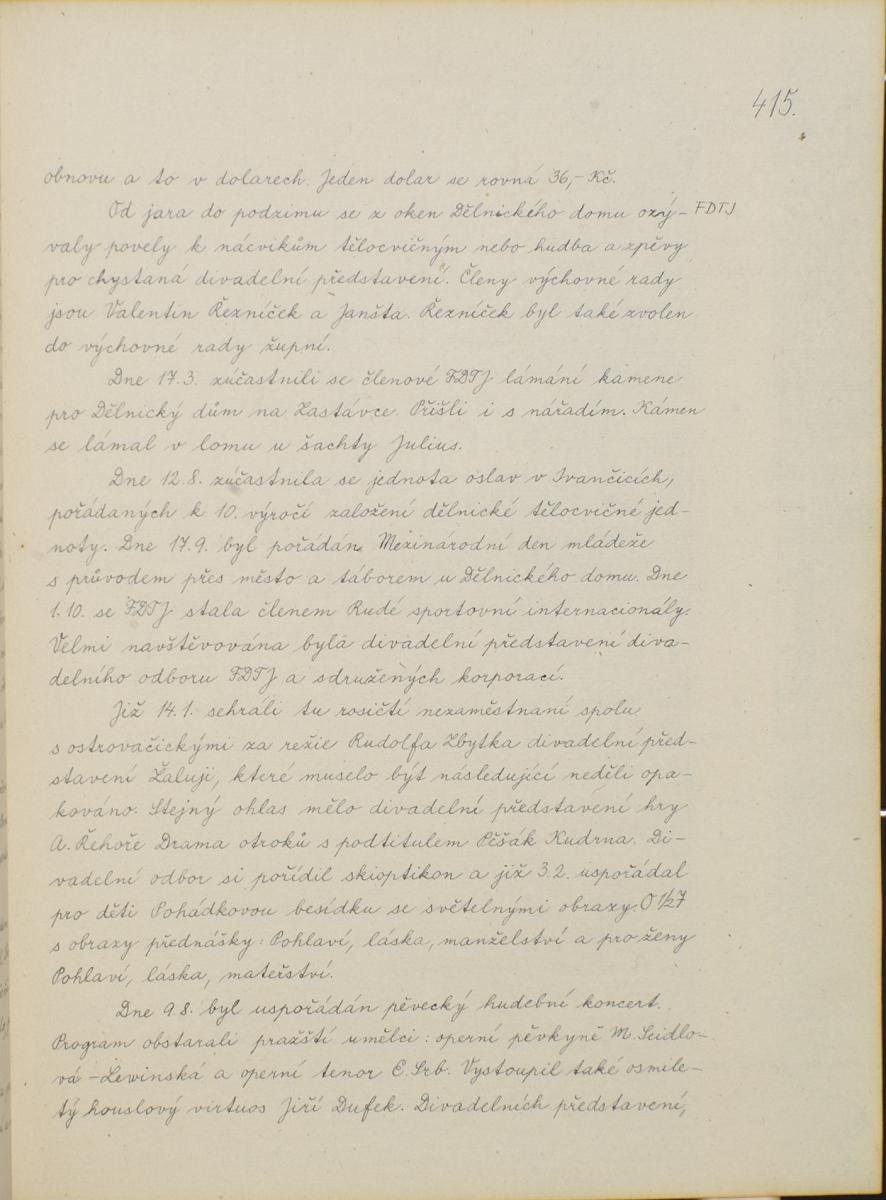 415.
obnovu a to v dolarech. Jeden dolar se rovná 36,- Kč.
Od jara do podzimu se z oken Dělnického domu ozý- FDTJ
valy povely k nácvikům tělocvičným nebo hudba a zpěvy
pro chystaná divadelní představení. Členy výchovné rady
jsou Valentin Řezníček a Janšta. Řezníček byl také zvolen
do výchovné rady župní.
Dne 17.3. zúčastnili se členové FDTJ lámání kamene
pro Dělnický dům na Zastávce. Přišli i s nářadím. Kámen
se lámal v lomu u šachty Julius.
Dne 12.8. zúčastnila se jednota oslav v Ivančicích,
pořádaných k 10. výročí založení dělnické tělocvičné jed-
noty. Dne 17.9. byl pořádán Mezinárodní den mládeže
s průvodem přes město a táborem u Dělnického domu. Dne
1.10. se FDTJ stala členem Rudé sportovní internacionály.
Velmi navštěvována byla divadelní představení diva-
delního odboru FDTJ a sdružených korporací.
Již 14.1. sehráli tu rosičtí nezaměstnaní spolu
s ostrovačickými za režie Rudolfa Zbytka divadelní před-
stavení Žaluji, které muselo být následující neděli opa-
kováno. Stejný ohlas mělo divadelní představení hry
A. Řehoře Drama otroků s podtitulem Pěšák Kudrna. Di-
vadelní odbor si pořídil skioptikon a již 3.2. uspořádal
pro děti Pohádkovou besídku se světelnými obrazy. O 1/2 7
s obrazy přednášky: Pohlaví, láska, manželství a pro ženy
Pohlaví, láska, mateřství.
Dne 9.8. byl uspořádán pěvecký hudební koncert.
Program obstarali pražští umělci: operní pěvkyně M. Seidlo-
vá-Lewinská a operní tenor E. Srb. Vystoupil také osmile-
tý houslový virtuos Jiří Dufek. Divadelních představení,